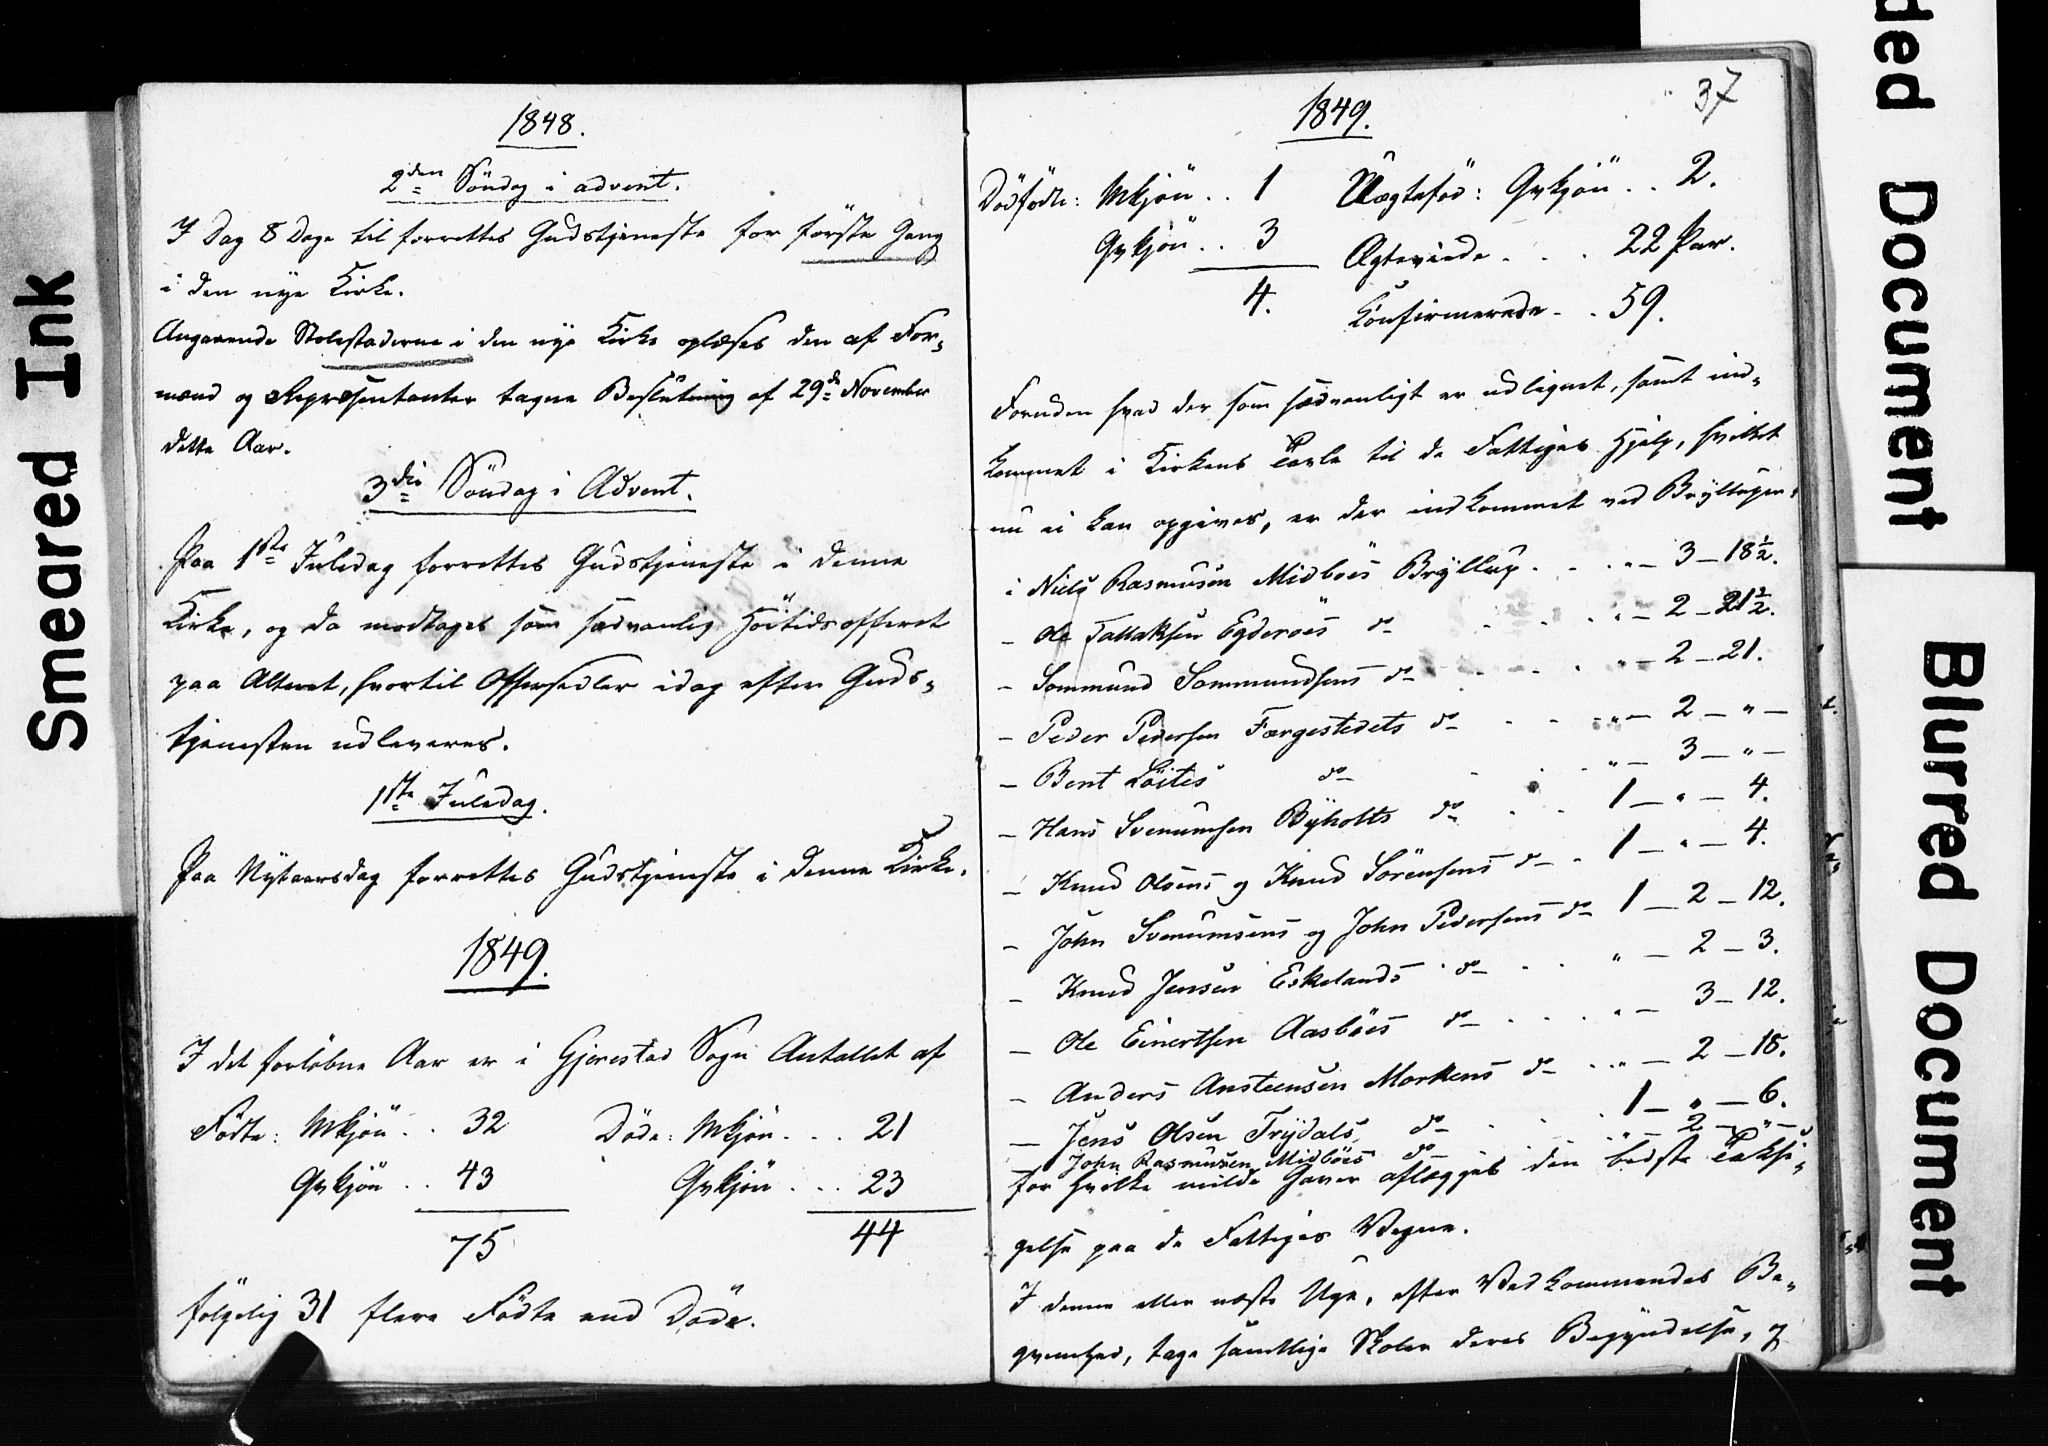 1848.
2den Söndag i advent.
I Dag 8 Dage til forrettes Gudstjeneste for förste Gang
i den nye Kirke.
Angaaende Stolestaderne i den nye Kirke oplæses den af For-
mænd og Repræsentanter tagne Beslutning af 29de November
dette Aar.
3die Söndag i Advent.
Paa 1ste Juledag forrettes Gudstjeneste i denne
Kirke, og da modtages som sædvanlig Höitidsofferet
paa Alteret, hvortil Offersedler idag efter Guds-
tjenesten udleveres.
1ste Juledag.
Paa Nytaarsdag forrettes Gudstjeneste i denne Kirke.
1849.
I det forløbne Aar er i Gjerestad Sogn Antallet af
Födte: Mkjön .. 32 Döde: Mkjön ... 21
Qvkjön .. 43 Qvkjön ... 23
75 44
fölgelig 31 flere Födte end Döde.
37
1849.
Dödfödte: Mkjön .. 1 Uægtefød: Qvkjön .. 2.
Qvkjön .. 3 Ægteviede . . . 22 Par.
4. Konfirmerede . . 59.
Foruden hvad der som sædvanligt er udlignet, samt ind-
kommet i Kirkens Tavle til de Fattiges Hjelp, hvilket
nu ei kan opgives, er der indkommet ved Bryllupper:
i Niels Rasmusen Midböes Bryllup . . . „ — 3 — 18½.
– Ole Tallaksen Egderöes do . . . „ — 2 — 21½.
– Sommund Sommundsens do . . . „ — 2 — 21.
– Peder Pedersen Færgestedets do . . . „ — 2 — „ —
– Bent Löites do . . . „ — 3 — „ —
– Hans Svenumsen Byholts do . . 1 — „ — 4.
– Knud Olsens og Knud Sörensens do . 1 — „ — 4.
– John Svenumsens og John Pedersens do 1 — 2 — 12.
– Knud Jensen Eskelands do . . . „ — 2 — 3.
– Ole Einertsen Aasböes do . . . „ — 3 — 12.
– Anders Ansteensen Morkens do . . „ — 2 — 18.
– Jens Olsen Trydals do . . . 1 — „ — 6.
John Rasmusen Midböes do . . . „ — 2 — „ —
for hvilke milde Gaver aflægges den bedste Taksi-
gelse paa de Fattiges Vegne.
I denne eller næste Uge, efter Vedkommendes Be-
qvemhed, tage samtlige Skoler deres Begyndelse, og
Smeared Ink
ded Document
Blurred Document